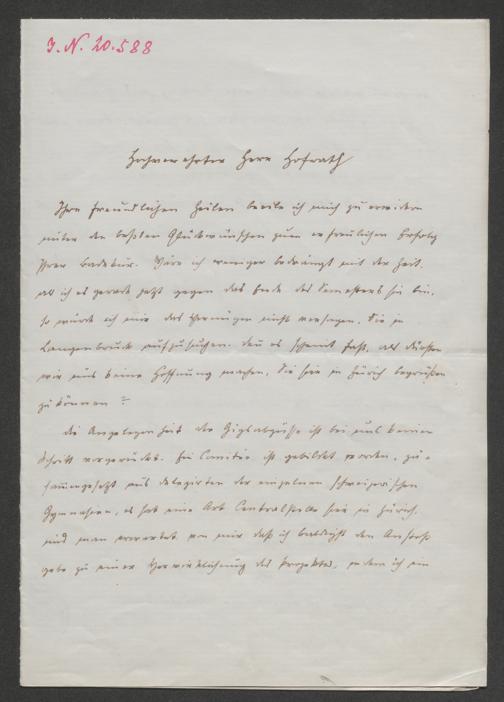 I. N. 20.588
Hochverehrter Herr Hofrath
Ihre freundlichen Zeilen beeile ich mich zu erwidern
unter den besten Glückwünschen zum erfreulichen Erfolg
Ihrer Badekur. Wäre ich weniger bedrängt mit der Zeit,
als ich es gerade jetzt gegen das Ende des Semesters hin bin,
so würde ich mir das Vergnügen nicht versagen, Sie in
Langenbruck aufzusuchen. denn es scheint fast, als dürften
wir uns keine Hoffnung machen, Sie hier in Zürich begrüßen
zu können?
die Angelegenheit der Gipsabgüsse ist bei uns keinen
Schritt vorgerückt. Ein Comitée ist gebildet worden, zu-
sammengesetzt aus delegirten der einzelnen schweizerischen
Gymnasien, es hat eine Art Centralstelle hier in Zürich,
und man erwartet von mir daß ich baldigst den Anstoß
gebe zu einer Verwirklichung des Projektes, indem ich ein